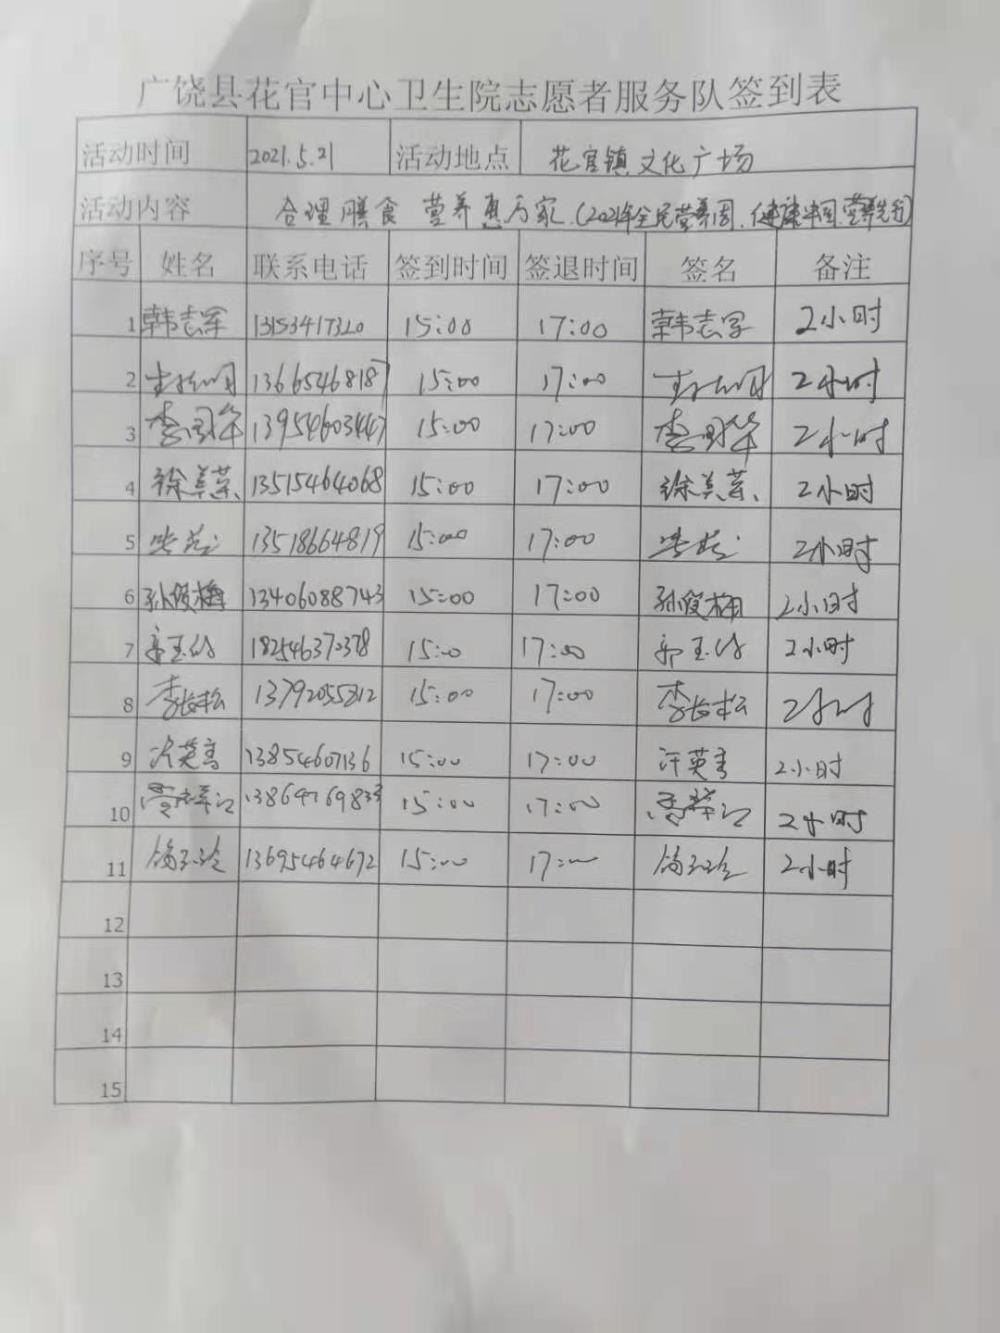 广饶县花官中心卫生院志愿者服务队签到表
活动时间 2021.5.21 活动地点 花官镇文化广场
活动内容 合理膳食 营养惠万家.(2021年全民营养周.健康中国 营养先行)
序号 姓名 联系电话 签到时间 签退时间 签名 备注
1 韩志军 13153417320 15:00 17:00 韩志军 2小时
2 13665468187 15:00 17:00 2小时
3 李国华 13954603447 15:00 17:00 李国华 2小时
4 徐美荣 13515464068 15:00 17:00 徐美荣 2小时
5 13518664819 15:00 17:00 2小时
6 孙俊梅 13406088743 15:00 17:00 孙俊梅 2小时
7 18254637378 15:00 17:00 2小时
8 李长松 13792055812 15:00 17:00 李长松 2小时
9 许英青 13854607136 15:00 17:00 许英青 2小时
10 15:00 17:00 2小时
11 13695464672 15:00 17:00 2小时
12
13
14
15